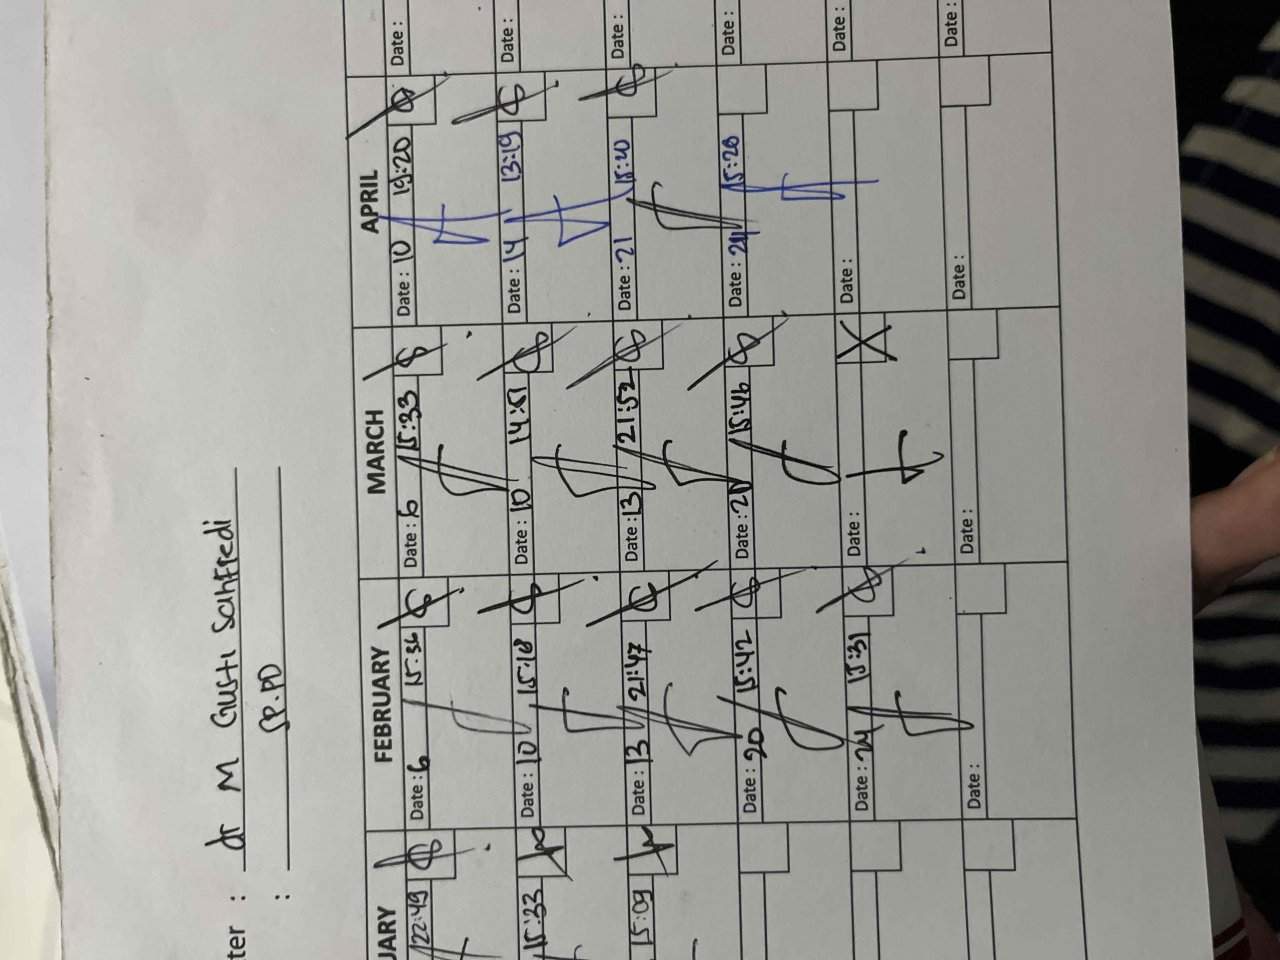 ter : dr M Gusti Sanfredi
: SP.PD
UARY
FEBRUARY
MARCH
APRIL
22:49
Date : 6 15:36
Date : 6 15:33
Date : 10 19:20
Date :
15:33
Date : 10 15:18
Date : 10 14:51
Date : 14 13:19
Date :
15:09
Date : 13 21:47
Date : 13 21:52
Date : 21 15:20
Date :
Date : 20 15:42
Date : 20 15:46
Date : 24 15:28
Date :
Date : 24 15:31
Date :
Date :
Date :
Date :
Date :
Date :
Date :